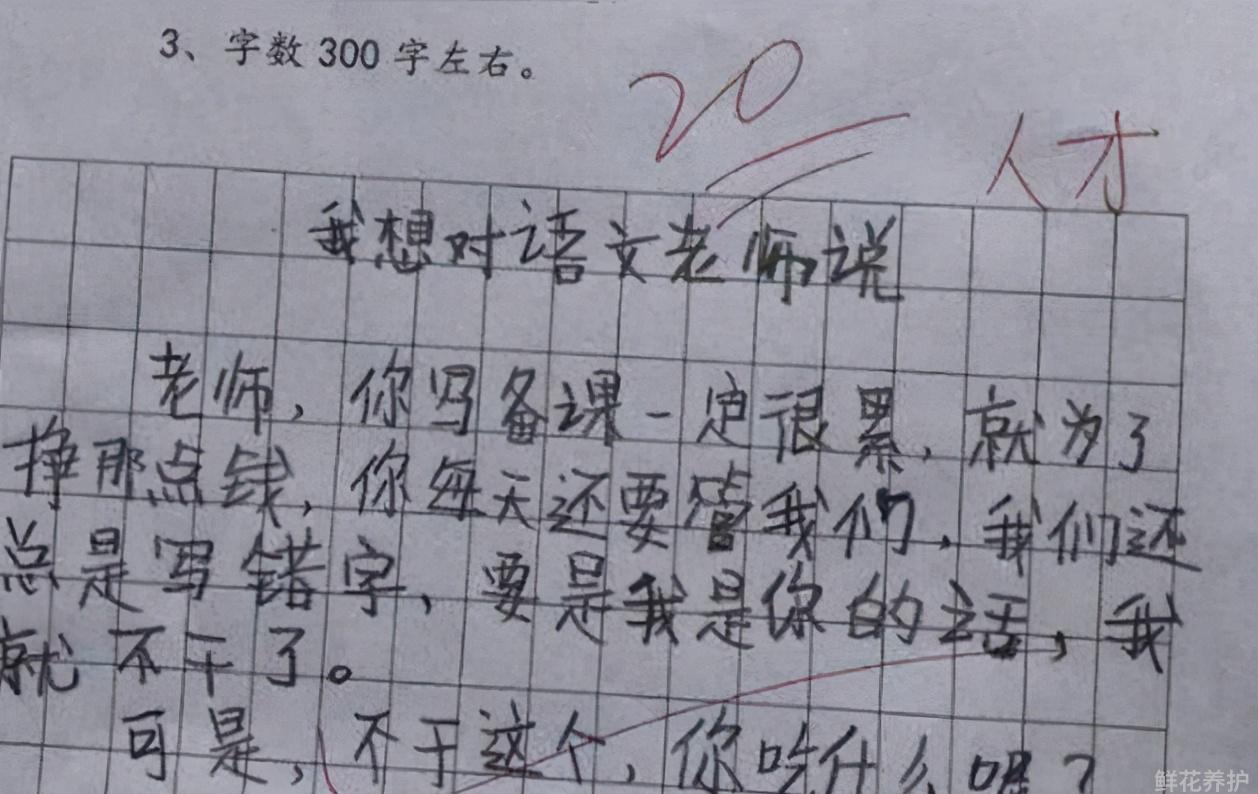 3、字数300字左右。
20
人才
我想对语文老师说
老师，你写备课一定很累，就为了
挣那点钱，你每天还要管我们，我们还
总是写错字，要是我是你的话，我
就不干了。
可是，不干这个，你吃什么呢？
鲜花养护